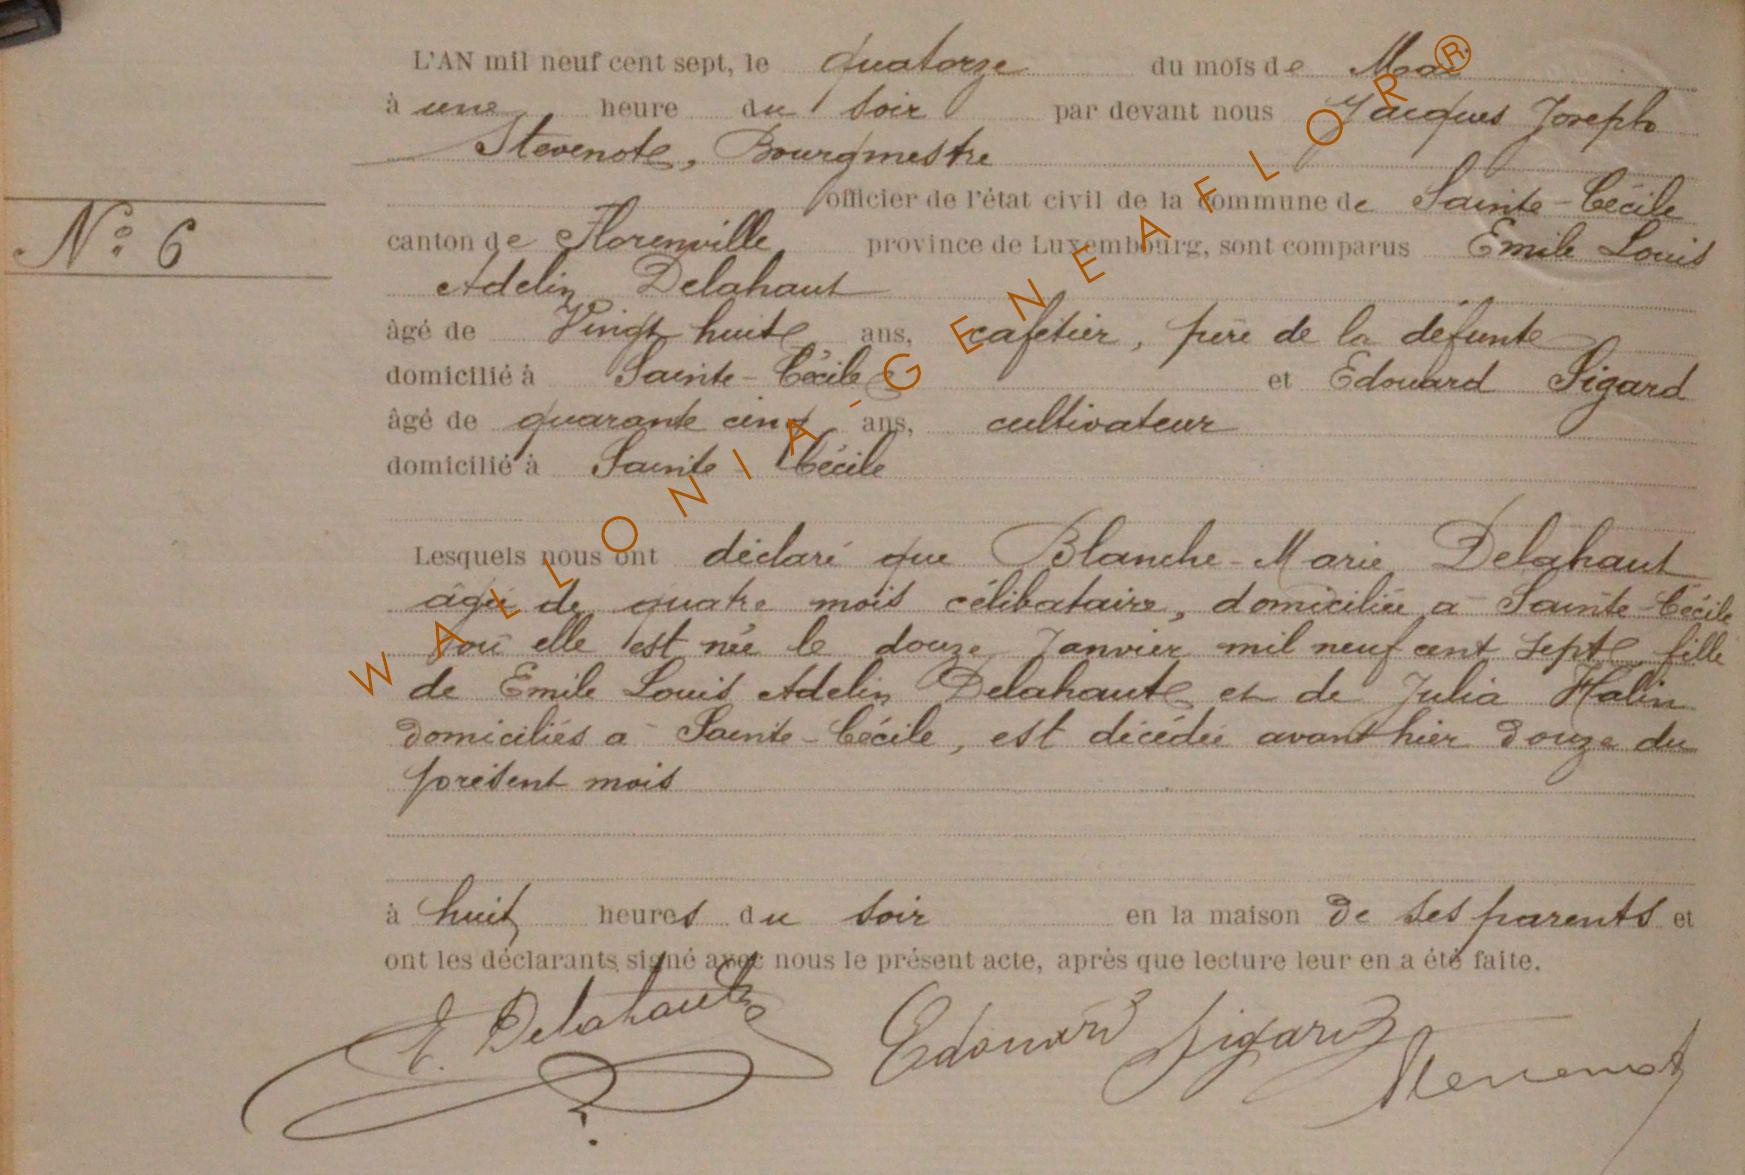 L'AN mil neuf cent sept, le quatorze du mois de Mai
à une heure du soir par devant nous Jacques Joseph
Stevenot, Bourgmestre
officier de l'état civil de la commune de Sainte-Cécile
N° 6
canton de Florenville province de Luxembourg, sont comparus Emile Louis
Adelin Delahaut
âgé de Vingt huit ans, cafetier, père de la défunte
domicilié à Sainte-Cécile et Edouard Sigard
âgé de quarante cinq ans, cultivateur
domicilié à Sainte-Cécile
Lesquels nous ont déclaré que Blanche-Marie Delahaut
âgée de quatre mois célibataire, domiciliée à Sainte-Cécile
où elle est née le douze Janvier mil neuf cent sept fille
de Emile Louis Adelin Delahaut et de Julia Halin
domiciliés à Sainte-Cécile, est décédée avant hier douze du
présent mois
à huit heures du soir en la maison de ses parents et
ont les déclarants signé avec nous le présent acte, après que lecture leur en a été faite.
E. Delahaut Edouard Sigard Stevenot
WALLONIA-GENEAFLOR®